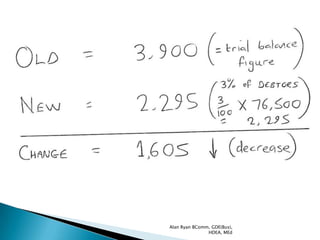 OLD = 3,900 (= trial balance figure)
NEW = 2,295 (3% of DEBTORS 3/100 × 76,500 = 2,295)
CHANGE = 1,605 ↓ (decrease)
Alan Ryan BComm, GDE(Bus),
HDEA, MEd